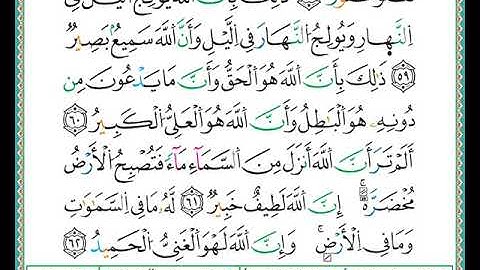 ذَٰلِكَ بِأَنَّ ٱللَّهَ يُولِجُ ٱلَّيۡلَ فِي
ٱلنَّهَارِ وَيُولِجُ ٱلنَّهَارَ فِي ٱلَّيۡلِ وَأَنَّ ٱللَّهَ سَمِيعُۢ بَصِيرٞ
٥٩ ذَٰلِكَ بِأَنَّ ٱللَّهَ هُوَ ٱلۡحَقُّ وَأَنَّ مَا يَدۡعُونَ مِن
دُونِهِۦ هُوَ ٱلۡبَٰطِلُ وَأَنَّ ٱللَّهَ هُوَ ٱلۡعَلِيُّ ٱلۡكَبِيرُ ٦٠
أَلَمۡ تَرَ أَنَّ ٱللَّهَ أَنزَلَ مِنَ ٱلسَّمَآءِ مَآءٗ فَتُصۡبِحُ ٱلۡأَرۡضُ
مُخۡضَرَّةًۚ إِنَّ ٱللَّهَ لَطِيفٌ خَبِيرٞ ٦١ لَّهُۥ مَا فِي ٱلسَّمَٰوَٰتِ
وَمَا فِي ٱلۡأَرۡضِۚ وَإِنَّ ٱللَّهَ لَهُوَ ٱلۡغَنِيُّ ٱلۡحَمِيدُ ٦٢